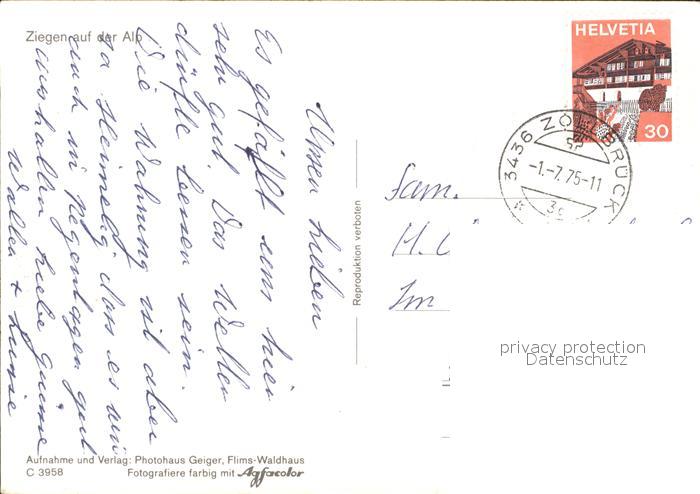 Ziegen auf der Alp
Unsern Lieben
Es gefällt uns hier
sehr gut. Das Wetter
dürfte besser sein.
Die Wohnung ist aber
so heimelig das es uns
auch in Regentagen gut
aushalten. Liebe Grüsse
Walter +
Reproduktion verboten
HELVETIA
30
3436 ZOLLBRÜCK
-1.-7.75-11
Fam.
H.
Im
privacy protection
Datenschutz
Aufnahme und Verlag: Photohaus Geiger, Flims-Waldhaus
C 3958 Fotografiere farbig mit Agfacolor